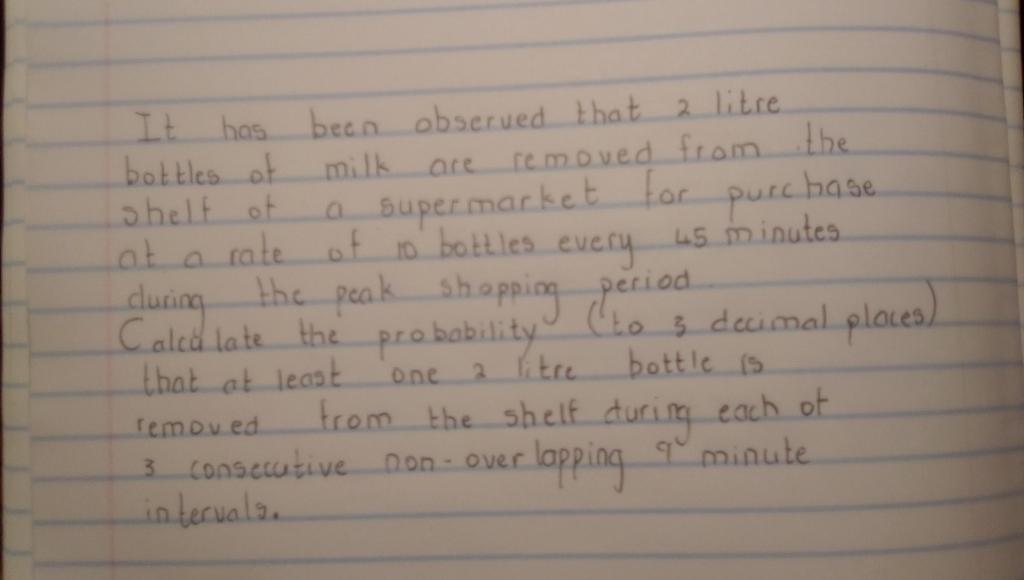 It has been observed that 2 litre
bottles of milk are removed from the
shelf of a supermarket for purchase
at a rate of 10 bottles every 45 minutes
during the peak shopping period.
Calculate the probability (to 3 decimal places)
that at least one 2 litre bottle is
removed from the shelf during each of
3 consecutive non-overlapping 9 minute
intervals.